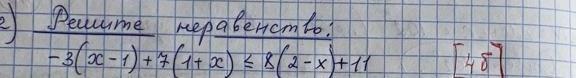 2) Решите неравенство:
-3(x-1)+7(1+x) ≤ 8(2-x)+11 [4б]